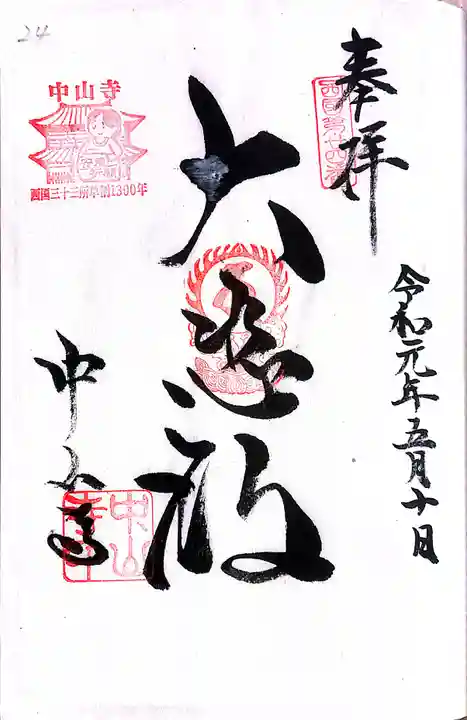 奉拝
西国第廿四番
令和元年五月十日
大悲殿
中山寺
中山寺
西国三十三所草創1300年
中山寺
24